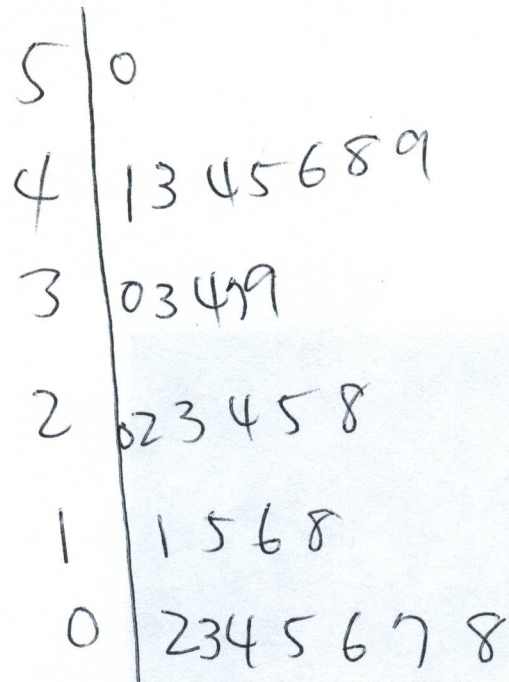 5 | 0
4 | 1 3 4 5 6 8 9
3 | 0 3 4 7 9
2 | 0 2 3 4 5 8
1 | 1 5 6 8
0 | 2 3 4 5 6 7 8